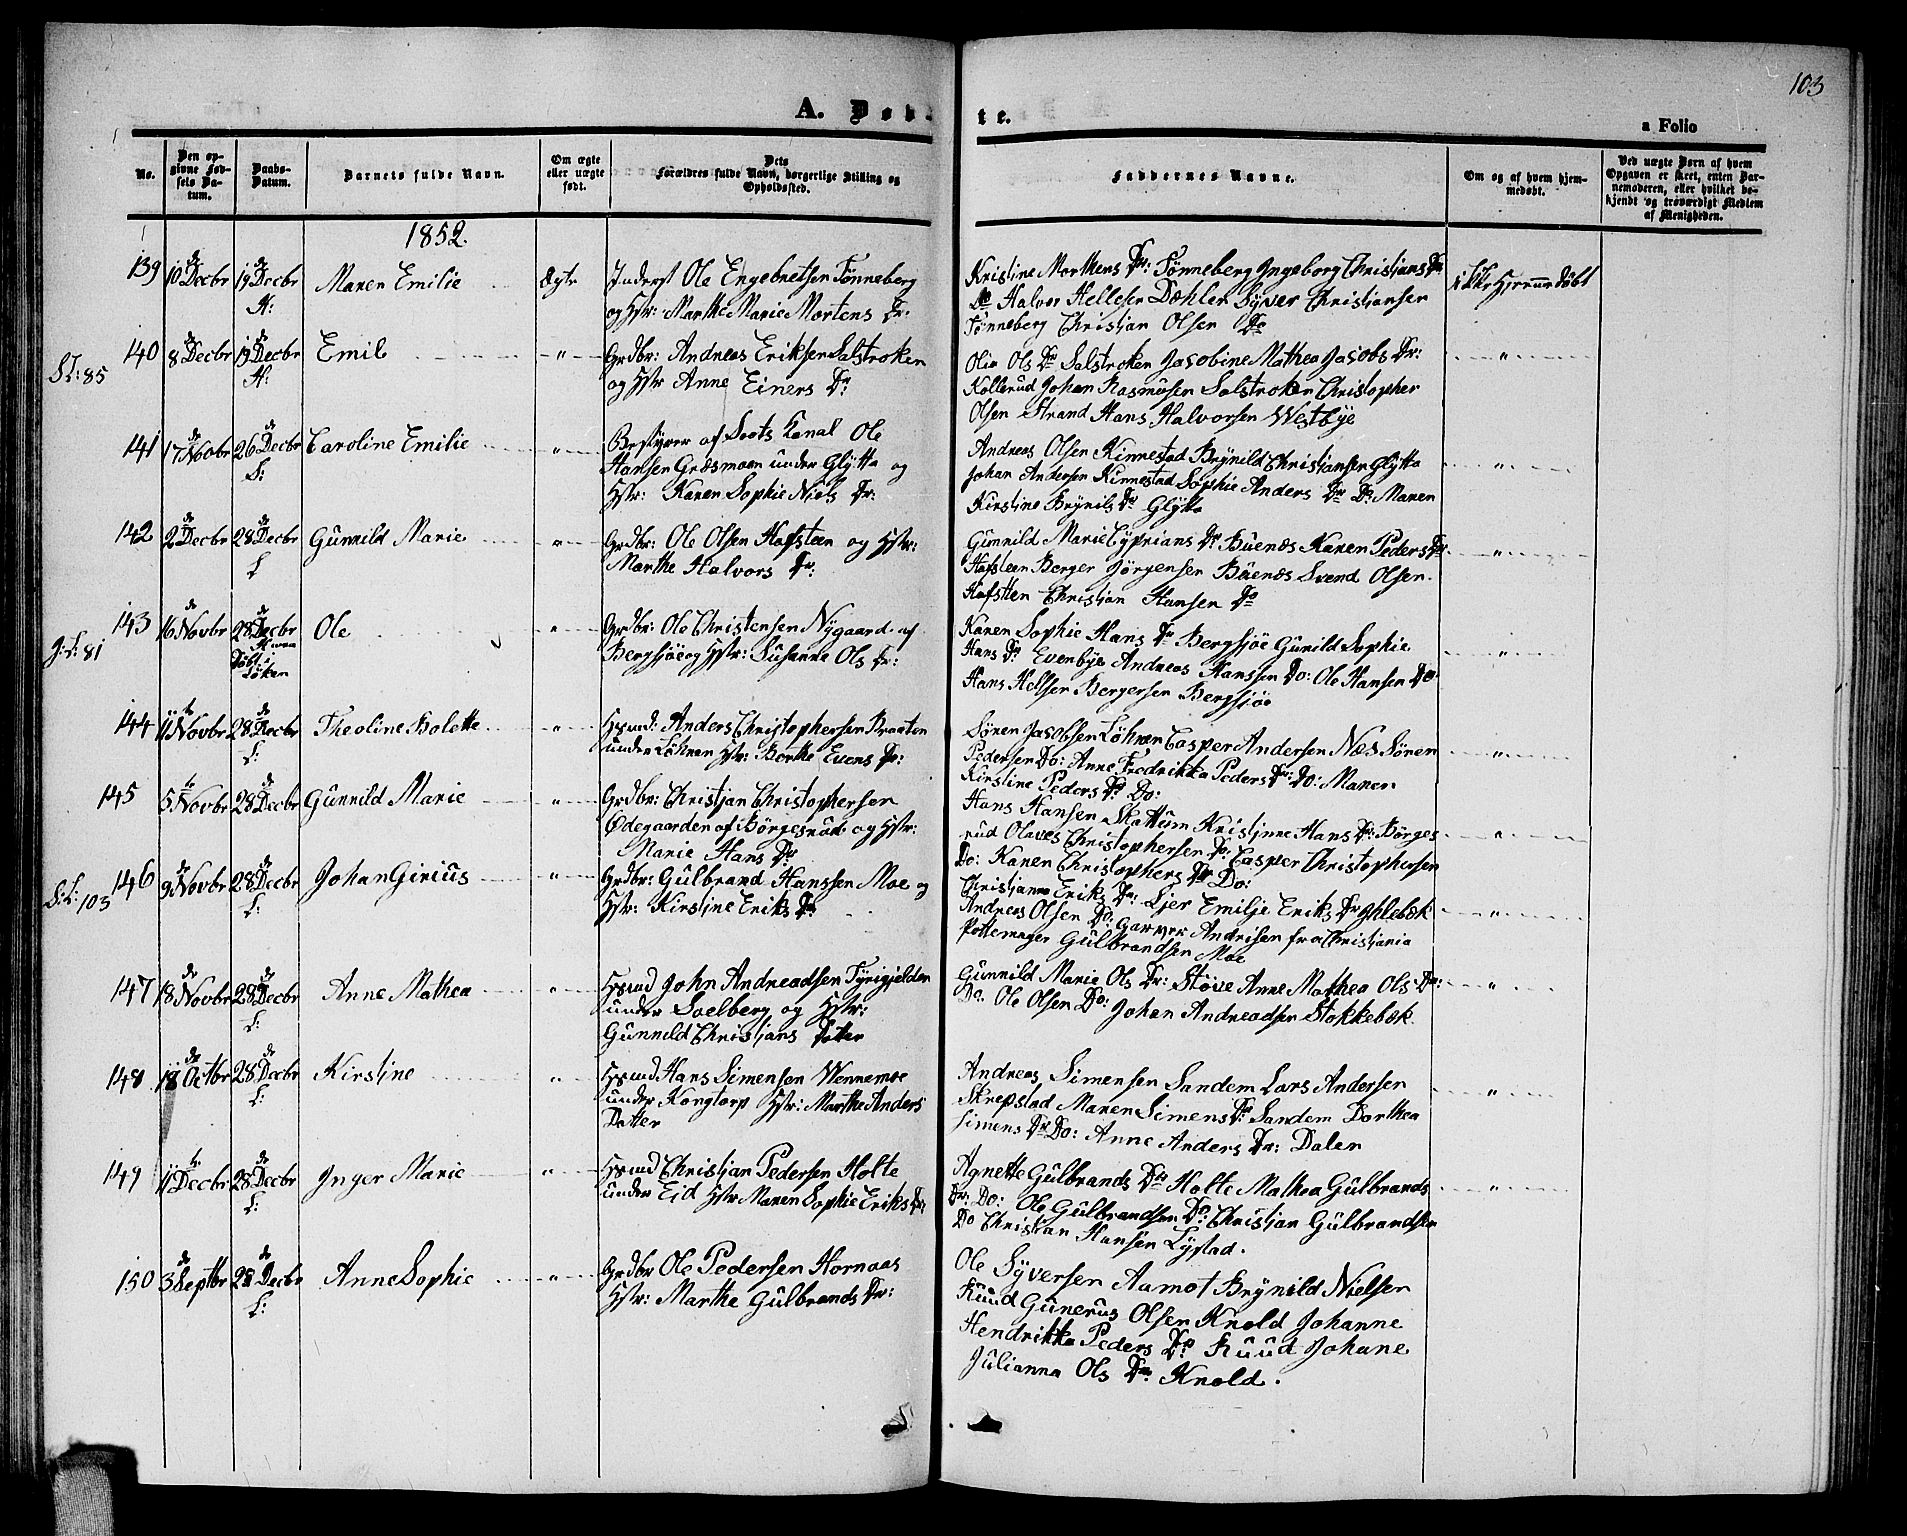 103
A. Døb-
te.
a Folio
No.
Den op-
givne Fød-
sels Da-
tum.
Daabs-
Datum.
Barnets fulde Navn.
Om ægte
eller uægte
født.
Dets
Forældres fulde Navn, borgerlige Stilling og
Opholdssted.
Faddernes Navne.
Om og af hvem hjem-
medøbt.
Ved uægte Børn af hvem
Opgaven er skeet, enten Bar-
nemoderen, eller hvilket be-
kjendt og troværdigt Medlem
af Menigheden.
1852.
139 10 de Decbr 19 de Decbr Maren Emilie Ægte Inderst Ole Engebretsen Tønneberg
H: og Hstr: Marthe Marie Mortens Dr:
Kristine Morthens Dr: Tønneberg Ingeborg Christians Dr
Do Halvor Hellesen Dæhlen Syver Christiansen
Tønneberg Christian Olsen Do
ikke Hjemmedøbt
140 8 de Decbr 19 de Decbr Emil " Grdbr: Andreas Eriksen Salstroken
St: 85 H: og Hstr Anne Einers Dr
Olia Ols Dr Salstroken Jacobine Mathea Jacobs Dr:
Kollerud Johan Rasmusen Salstroken Christopher
Olsen Strand Hans Halvorsen Westbye
"
141 17 de Novbr 26 de Decbr Caroline Emilie " Bestyrer af Soots Kanal Ole
S: Hansen Græsmoen under Glytta og
Hstr: Karen Sophie Niels Dr:
Andreas Olsen Kinnestad Brynild Christiansen Glytta
Johan Andersen Kinnestad Sophie Anders Dr Do: Maren
Kirstine Brynils Dr Glytta
"
142 2 de Decbr 28 de Decbr Gunnild Marie " Grdbr: Ole Olsen Hafsteen og Hstr:
L Marthe Halvors Dr:
Gunnild Marie Cyprians Dr Buenæs Karen Peders Dr
Hafsteen Berger Jørgensen Buenæs Svend Olsen
Hafsteen Christian Hansen Do
"
143 16 de Novbr 28 de Decbr Ole " Grdbr: Ole Christensen Nygaard af
J: L: 81 Bergsjøe og Hstr: Susanne Ols Dr:
Karen Sophie Hans Dr Bergsjøe Gunild Sophie
Hans Dr Evenbye Andreas Hanssen Do: Ole Hansen Do:
Hans Helsen Bergersen Bergsjøe
"
144 11 te Novbr 28 de Decbr Theoline Bolette " Hsmd: Anders Christophersen Braaten
L: under Løhren Hstr: Berthe Evens Dr:
Søren Jacobsen Løhren Casper Andersen Næs Søren
Pedersen Do: Anne Fredrikka Peders Dr: Do: Maren
Kirstine Peders Dr Do:
"
145 5 te Novbr 28 de Decbr Gunnild Marie " Grdbr: Christian Christophersen
Ødegaarden af Børgesrud og Hstr:
Marie Hans Dr
Hans Hansen Skottum Kristinne Hans Dr: Børges
rud Olaves Christophersen Do: Casper Christophersen
Do: Karen Christophers Dr Do:
"
146 9 de Novbr 28 de Decbr Johan Girius " Grdbr: Gulbrand Hanssen Moe og
S: L: 103 L: Hstr: Kirstine Eriks Dr
Christianna Eriks Dr: Ljer Emilje Eriks Dr Ihlebæk
Andreas Olsen Do: Garver Andrisen fra Christiania
Pottemager Gulbrandsen Moe
"
147 18 de Novbr 28 de Decbr Anne Mathea " Hsmd John Andreadsen Tyrigjelden
L: under Soelberg og Hstr:
Gunnild Christians Dotter
Gunnild Marie Ols Dr: Støve Anne Mathea Ols Dr:
Do. Ole Olsen Do: Johan Andreadsen Stokkebæk.
"
148 18 de Octbr 28 de Decbr Kirstine " Hsmd Hans Simensen Wennemoe
L: under Kongtorp Hstr: Marthe Anders
Datter
Andreas Simensen Sandem Lars Andersen
Skrepstad Maren Simens Dr Sandem Dorthea
Simens Dr Do: Anne Anders Dr: Dalen
"
149 11 te Decbr 28 de Decbr Inger Marie " Hsmd Christian Pedersen Holte
L: under Eid Hstr Maren Sophie Eriks Dr:
Agnette Gulbrands Dr Holte Mathea Gulbrands
Dr: Do: Ole Gulbrandsen Do: Christian Gulbrandsen
Do Christian Hansen Lystad.
"
150 3 de Septbr 28 de Decbr Anne Sophie " Grdbr Ole Pedersen Hornaas
L: Hstr: Marthe Gulbrands Dr:
Ole Syversen Aamot Brynild Nielsen
Ruud Gunerus Olsen Knold Johanne
Hendrikka Peders Dr Ruud Johane
Julianna Ols Dr Knold.